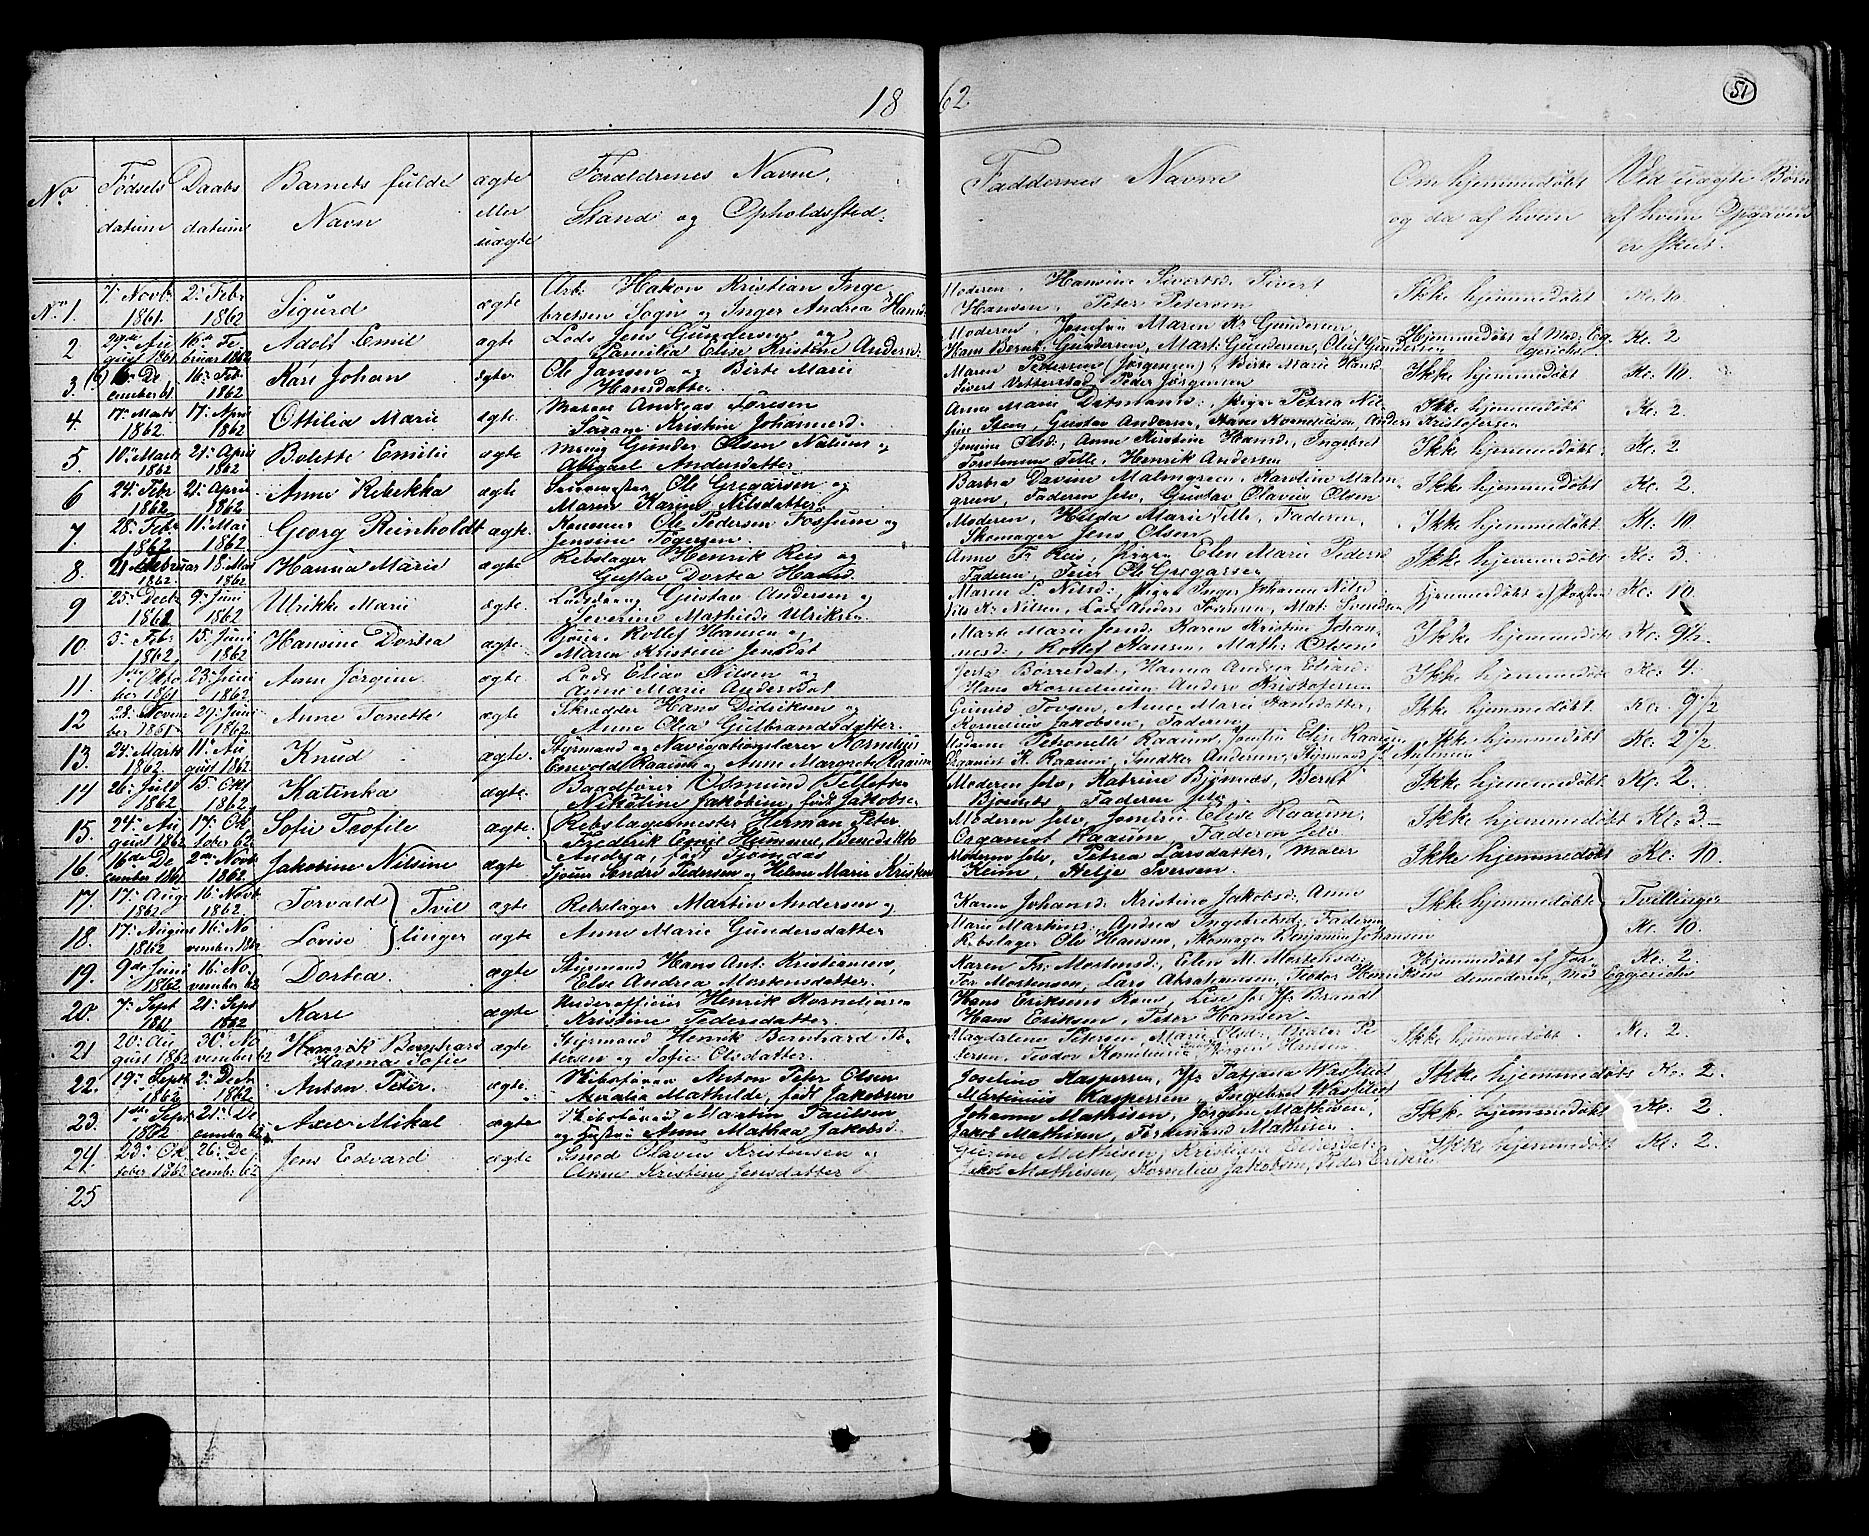 18 62
51
No
Fødsels datum
Daabs datum
Barnets fulde Navn
ægte eller uægte
Forældrenes Navne, Stand og Opholdssted
Faddernes Navne
Om hjemmedøbt og da af hvem
Ved uægte Børn af hvem Opgaven er skeet.
No 1. 7. Novb. 1861 2. Febr 1862 Sigurd ægte Arb. Hakon Kristian Inge
bretsen Sogn og Inger Andrea Hansd
Moderen, Hansine Sivertsd. Sivert
Hansen, Peter Petersen
Ikke hjemmedøbt Kl. 10
2 gust 1861 16 Februar 1862 Adolf Emil ægte Lods Jens Gundersen og
Familia Elise Kristine Andersn
Moderen, Josefin Maren K. Gundersen,
Hans Bernt Gundersen, Mart. Gundersen, Oluf Gundersen
Hjemmedøbt af Mad. Eggerichs Kl. 2
3 6. December 61 16. Feb. 1862 Karl Johan ægte. Ole Jansen og Birte Marie
Hansdatter.
Maren Pedersen (Jørgensen), Birte Marie Hansd
Sivert Vetterstad, Peder Jørgensen
Ikke hjemmedøbt Kl. 10.
4 17. Marts 1862 17. April 1862 Ottilia Marie ægte. Andreas Føresen
Kristin Johannesd.
Anne Marie Ditmann, Pige Petrea Nil-
Gustav Andersen, Hans Kornelius en, Anders Kristofersen
Ikke hjemmedøbt Kl. 2
5 10. Mark 1862 21. April 1862 Bolette Emilie ægte Gunder Olsen og
Abigael Andersdatter
Jensine Olsd., Anne Kristine Hansd., Ingebret
Torstensen Telle, Henrik Andersen
Ikke hjemmedøbt. Kl. 2
6 24. Febr 1862 21. April 1862 Anne Rebekka ægte Ole Gregarsen og
Maren Karine Nilsdatter
Barbra Davine Malmgren, Karoline Malm
gren, Faderen selv, Gustav Olavus Olsen
Ikke hjemmedøbt Kl. 2.
7. 28. Febr. 1862 11. Mai 1862 Georg Reinholdt ægte. Ole Pedersen Fossum og
Jensine Tøgersen.
Moderen, Hilda Marie Telle, Faderen,
Skomager Jens Olsen
Ikke hjemmedøbt Kl. 10.
8. 21. Februar 1862. 18. Mai 1862. Hanna Marie ægte Rebslager Henrik Reis og
Gustav Dortea Hansd.
Anne Fr. Reis, Pige Elen Marie Peders
Faderen, Feier Ole Gregarsen
Ikke hjemmedøbt Kl. 3.
9 25. Decbr 1861 9. Juni 1862 Ulrikke Marie ægte. Gustav Andersen og
Severine Mathilde Ulriksen
Maren L. Nilsd. Pige Inger Johanna Nilsd
Nils Kr. Nilsen, Lods Anders Sørensen, Mat. Svendsen
Hjemmedøbt af Kl. 10
10. 3. Febr 1862. 15. Juni 1862. Hansine Dortea ægte. Rollef Hansen og
Maren Kristine Jensdat
Marte Marie Jensd. Karen Kristine Johan-
nesd., Rollef Hansen, Math. Olsen
Ikke hjemmedøbt Kl. 9½.
11. Oktober 1861 23. Juni 1862. Anne Jørgine ægte Lods Elias Nilsen og
Anne Marie Andersdat
Børresdat, Hanna Andrea Eliasd.
Hans Kornelius, Anders Kristofersen
Ikke hjemmedøbt Kl. 4.
12 28. November 1861 29. Juni 1862 Anne Tonette ægte Skrædder Hans Didriksen og
Anne Olea Gulbrandsdatter.
Anne Marie Hansdatter,
Kornelius Jakobsen, Faderen
Ikke hjemmedøbt Kl. 9½
13. 24. Mark 1862 11. August 1862 Knud ægte. Styrmand og Navigationslærer Kornelius
Enevold Raaum og Anne Margrete Raaum
Madame Petronelle Raaum, Jomfru Elise Raaum,
Organist K. Raaum, Snedker Andersen, Styrmand Nilsen
Ikke hjemmedøbt Kl. 2½.
14 26. Juli 1862 15. Okt 1862. Katinka ægte. Baadfører Osmund Tellefsen
Nikoline Jakobine, født Jakobse
Moderen selv, Katrine Bjønnes, Bernt
Bjønnes, Faderen selv
Ikke hjemmedøbt Kl. 2.
15. 24. August 1862 17. October 62 Sofie Teofile ægte. Rebslagermester Herman Peter
Frederik Emil Benedikte
Andrea, født
Moderen selv, Jomfru Elise Raaum,
Organist Raaum, Faderen selv
Ikke hjemmedøbt Kl. 3.
16. 16de December 1861 2den Novbr 1862. Jakobine Nilsine ægte Andrs Pedersen og Helene Marie Kristens
Moderen selv, Petrea Larsdatter, Maler
Keim, Helje Iversen.
Ikke hjemmedøbt Kl. 10.
17. 17. Aug 1862 16. Novb. 1862. Torvald Tvil ægte Rebslager Martin Andersen og
Karen Johansd. Kristine Jakobsd. Anne
Ikke hjemmedøbt Tvillinger
18. 17. August 1862 16. November 1862 Lovise linger ægte Anne Marie Gundersdatter
Marie Martinsd. Andrea Ingebretsd. Faderen,
Rebslager Ole Hansen, Skomager Benjamin Johansen
Kl. 10.
19. 9de Juni 1862 16. November 62 Dortea ægte Styrmand Hans Ant. Kristiansen,
Else Andrea Mortensdatter.
Karen Fr. Mortensd., Elen M. Mortensd.
Tor Mortensen, Lars Abrahamsen, Teodor Henriksen
Hjemmedøbt af Jordemoderen, Mad Eggerichs Kl. 2
20. 7. Sept 1861 21. Sept 1862 Karl ægte Underofficier Henrik Kornelius en
Kristine Pedersdatter.
Hans Eriksens Kone, Lise Jfr. Brandt
Hans Eriksen, Peter Hansen.
21 20. August 1862 30. November 62 Henrik Bernhard
Hanna Sofie ægte Styrmand Henrik Bernhard Pe-
tersen og Sofie Olsdatter.
Magdalene Petersen, Marie Olsd., Maler Pe
tersen, Teodor Kornelius en Jørgen Hansen
Ikke hjemmedøbt Kl. 2.
22. 19. Septb 1862 2. Decb 1862 Anton Peter. ægte. Skibsfører Anton Peter Olsen
Amalia Mathilde, født Jakobsen
Joseline Kaspersen, Jfr Tatjana Wasfelot
Martinius Kaspersen, Ingebret Wasfelot
Ikke hjemmedøbt Kl. 2.
23. 1ste Sept. 1862 21. December 62. Axel Mikal ægte Skibsfører Martin Paulsen
og Hustru Anne Mathea Jakobsd.
Johanne Mathisen, Jørgine Mathisen,
Jakob Mathisen, Ferdinand Mathisen
Ikke hjemmedøbt Kl. 2
24. 23. October 1862 26. Decemb. 62 Jens Edvard ægte Smed Olavus Kristensen og
Anne Kristine Jensdatter
Mathisen, Kristiane
Jakob Mathisen, Kornelius Jakobsen, Peder Eriksen
Ikke hjemmedøbt Kl. 2.
25